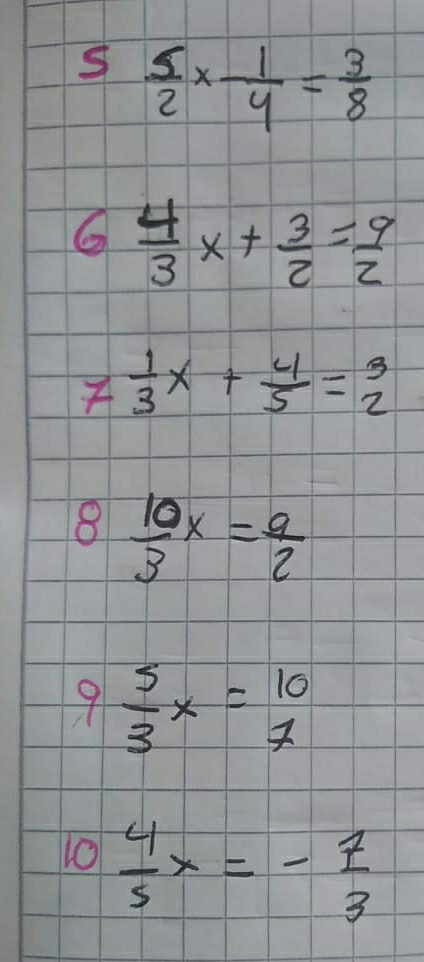 5 5/2 x - 1/4 = 3/8
6 4/3 x + 3/2 = 9/2
7 1/3 x + 4/5 = 3/2
8 10/3 x = 9/2
9 5/3 x = 10/7
10 4/5 x = - 7/3